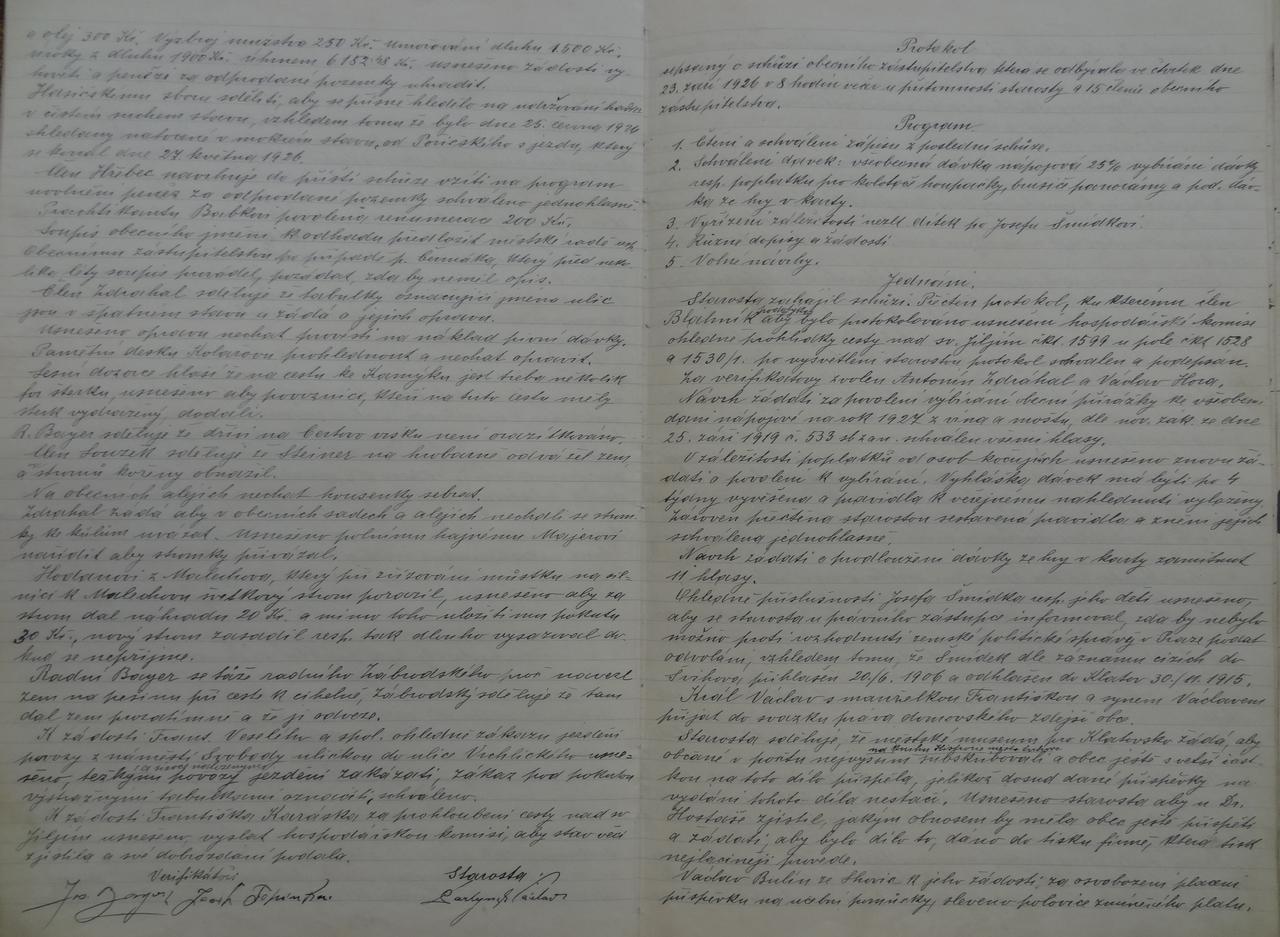 a olej 300 Kč. Výzbroj mužstva 250 Kč. Umořování dluhu 1500 Kč.
úroky z dluhu 1900 Kč. úhrnem 6182.48 Kč. usneseno žádosti vy-
hověti a penězi za odprodané pozemky uhradit.
Hasičskému sboru sděliti, aby se přísně hledělo na udržování hadic
v čistém suchém stavu, vzhledem tomu že bylo dne 25. června 1926
shledány natočené v mokrém stavu, od Poričského sjezdu, který
se konal dne 27. května 1926.
Člen Hřebec navrhuje do příští schůze vzíti na program
uvolnění peněz za odprodané pozemky schváleno jednohlasně.
Prachtikantu Babkovi povolena renumerace 200 Kč.
Soupis obecního jmění k odhadu předložit městské radě
Obecnímu zastupitelstvu po případě p. Čermáka, který před něko-
lika léty soupis prováděl, požádat, zda by neměl opis.
Člen Zdráhal sděluje že tabulky označující jména ulic
jsou v špatném stavu a žádá o jejich opravu.
Usneseno opravu nechat provésti na náklad první dávky.
Pamětní desku Kolarovu prohlédnout a nechat opravit.
Lesní dozorce hlásí že na cestu ke Kamýku jest třeba několik
fůr štěrku, usneseno aby povozníci, kteří na tuto cestu měly
štěrk vydražený, dodali.
R. Bayer sděluje že dříví na Čertovo vršku není orazítkováno.
Člen Souzek sděluje že Steiner na hrobárně odvážel zem,
a stromů kořeny obnažil.
Na obecních alejích nechat housenky sebrat.
Zdráhal žádá aby v obecních sadech a alejích nechali se strom-
ky ke kůlům uvázat. Usneseno polnímu hajnému Majerovi
nařídit aby stromky přivázal.
Hodanovi z Malechova, který při zřizování můstku na sil-
nici k Malechovu švestkový strom porazil, usneseno aby za
strom dal náhradu 20 Kč. a mimo toho uložiti mu pokutu
30 Kč., nový strom zasadil resp. tak dlouho vysazoval do-
kud se nepřijme.
Radní Bayer se táže radního Zábrodského proč navezl
zem na pěšinu při cestě k cihelně, Zábrodský sděluje že tam
dal zem prozatímně a že ji odveze.
K žádosti Frant. Veselého a spol. ohledně zákazu jezdění
povozy z náměstí Svobody uličkou do ulice Vrchlického usne-
seno, těžkými povozy jezdění zakázati, zákaz pod pokutou
výstražnými tabulkami označiti, schváleno.
K žádosti Františka Karáska za prohloubení cesty nad sv.
Jiljím usneseno, vyslat hospodářskou komisi, aby stav věci
zjistila a své dobrozdání podala.
Verifikátoři
Starosta:
Protokol
sepsaný o schůzi obecního zastupitelstva, která se odbývala ve čtvrtek dne
23. září 1926 v 8 hodin večer u přítomnosti starosty a 15 členů obecního
zastupitelstva.
Program
1. Čtení a schválení zápisu z poslední schůze.
2. Schválení dávek: všeobecná dávka nápojová 25% vybírání dávky
resp. poplatku pro kolotoče houpačky, brusiče panorámy a pod. dáv-
ka ze hry v karty.
3. Vyřízení záležitosti nezl. dítek po Josefu Šmídkovi.
4. Různé dopisy a žádosti
5. Volné návrhy.
Jednání.
Starosta zahájil schůzi. Přečten protokol, ku kterému člen
Blahník aby bylo protokolováno usnesení hospodářské komise
ohledně prohlídky cesty nad sv. Jiljím čkt 1599 u pole čkt 1528
a 1530/1. po vysvětlení starostou protokol schválen a podepsán.
Za verifikátory zvolen Antonín Zdráhal a Václav Hora.
Návrh žádati za povolení vybírání obecní přirážky ke všeobec.
dani nápojové na rok 1927 z vína a moštu, dle nov. zák. ze dne
25. září 1919 č. 533 sb. z. a n. schválen všemi hlasy.
V záležitosti poplatků od osob kočujících usneseno znovu žá-
dati o povolení k vybírání. Vyhláška dávek má býti po 4
týdny vyvěšena a pravidla k veřejnému nahlédnutí vyloženy
Zároveň přečtena starostou sestavená pravidla a znění jejich
schváleno jednohlasně.
Návrh žádati o prodloužení dávky ze hry v karty zamítnut
11 hlasy.
Ohledně příslušnosti Josefa Šmídka resp. jeho dětí usneseno,
aby se starosta u právního zástupce informoval, zda by nebylo
možno proti rozhodnutí zemské politické správy v Praze podat
odvolání, vzhledem tomu, že Šmídek dle záznamu cizích do
Švihova přihlášen 20/6. 1906 a odhlášen do Klatov 30./11. 1915.
Král Václav s manželkou Františkou a synem Václavem
přijat do svazku práva domovského zdejší obce.
Starosta sděluje, že městské museum pro Klatovsko žádá, aby
na knihu Historie města Švihova
občané v počtu nejvyšším subskribovali a obec ještě s větší část-
kou na toto dílo přispěla, jelikož dosud dané příspěvky na
vydání tohoto díla nestačí. Usneseno starosta aby u Dr.
Hostaše zjistil, jakým obnosem by měla obec ještě přispěti
a žádati, aby bylo dílo to, dáno do tisku firmě, která tisk
nejlacinějí provede.
Václav Bulín ze Skoria k jeho žádosti, za osvobození placení
příspěvku na učební pomůcky, sleveno polovice zmíněného platu.